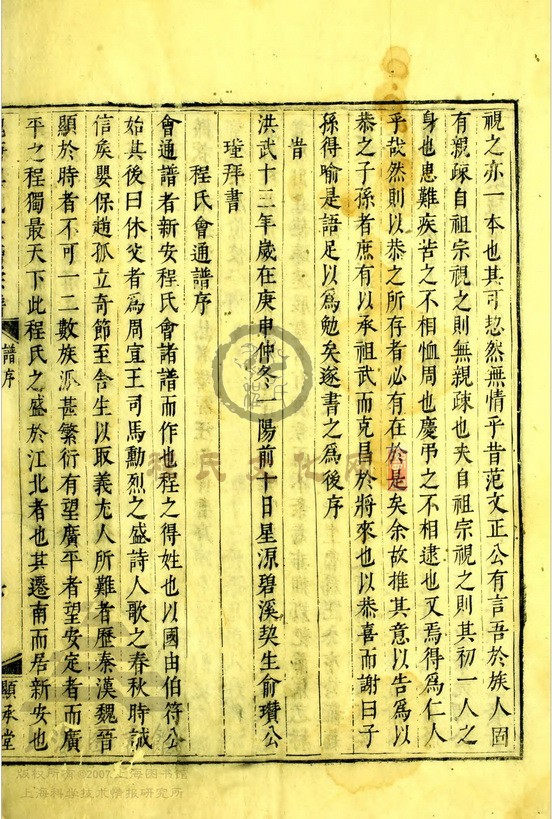 視之亦一本也其可恝然無情乎昔范文正公有言吾於族人固
有親疎自祖宗視之則無親疎也夫自祖宗視之則其初一人之
身也患難疾苦之不相恤周也慶弔之不相逮也又焉得為仁人
乎哉然則以恭之所存者必有在於是矣余故推其意以告為以
恭之子孫者庶有以承祖武而克昌於將來也以恭喜而謝曰子
孫得喻是語足以為勉矣遂書之為後序
旹
洪武十三年歲在庚申仲冬一陽前十日星源碧溪契生俞瓚公
瑾拜書
程氏會通譜序
會通譜者新安程氏會諸譜而作也程之得姓也以國由伯符公
始其後曰休父者為周宣王司馬勳烈之盛詩人歌之春秋時誠
信矦嬰保趙孤立奇節至舍生以取義尤人所難者歷秦漢魏晉
顯於時者不可一二數族派甚繁衍有望廣平者望安定者而廣
平之程獨最天下此程氏之盛於江北者也其遷南而居新安也
譜序
顯承堂
程氏文化网
版权所有©2007 上海图书馆
上海科学技术情报研究所